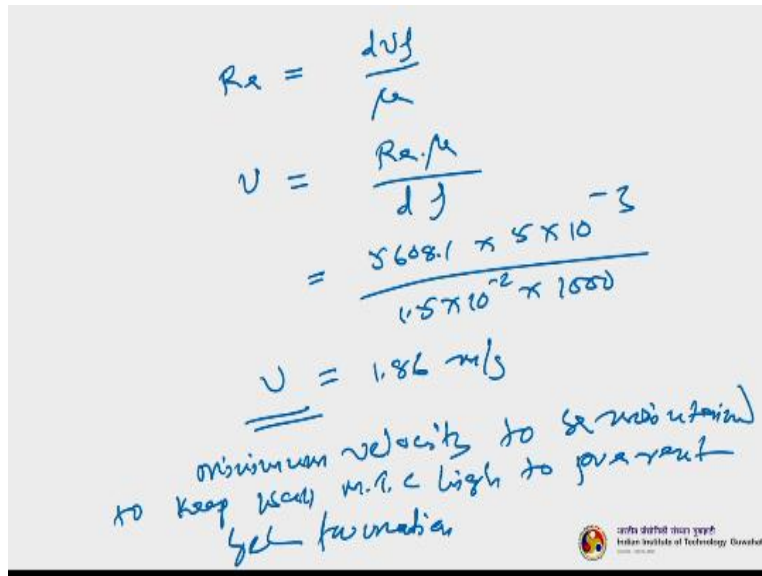 Re = dvρ / μ
v = Re.μ / d ρ
= 5608.1 x 5 x 10^-3 / 1.5 x 10^-2 x 1000
v = 1.86 m/s
minimum velocity to be maintained
to keep m.t.c high to prevent
gel formation
Indian Institute of Technology Guwahati